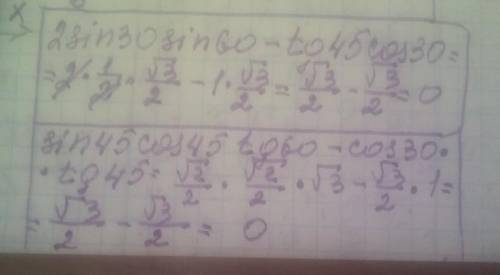 2sin30sin60-tg45cos30=
=2·1/2·√3/2-1·√3/2=√3/2-√3/2=0
sin45cos45 tg60-cos30·
·tg45=√2/2·√2/2·√3-√3/2·1=
=√3/2-√3/2=0